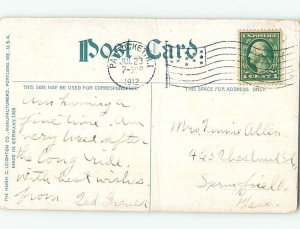 Post Card.
PAWTUCKET, R.I.
JUL 23
7-PM
1912
U.S. POSTAGE
THIS SIDE MAY BE USED FOR CORRESPONDENCE
THIS SPACE FOR ADDRESS ONLY.
THE HUGH C. LEIGHTON CO., MANUFACTURERS, PORTLAND, ME., U.S.A.
Am having a
fine time. Am
very tired after
the long ride.
with best wishes
from Ted Fraser
Mrs Minnie Allen
460 Chestnut St
Springfield
Mass.